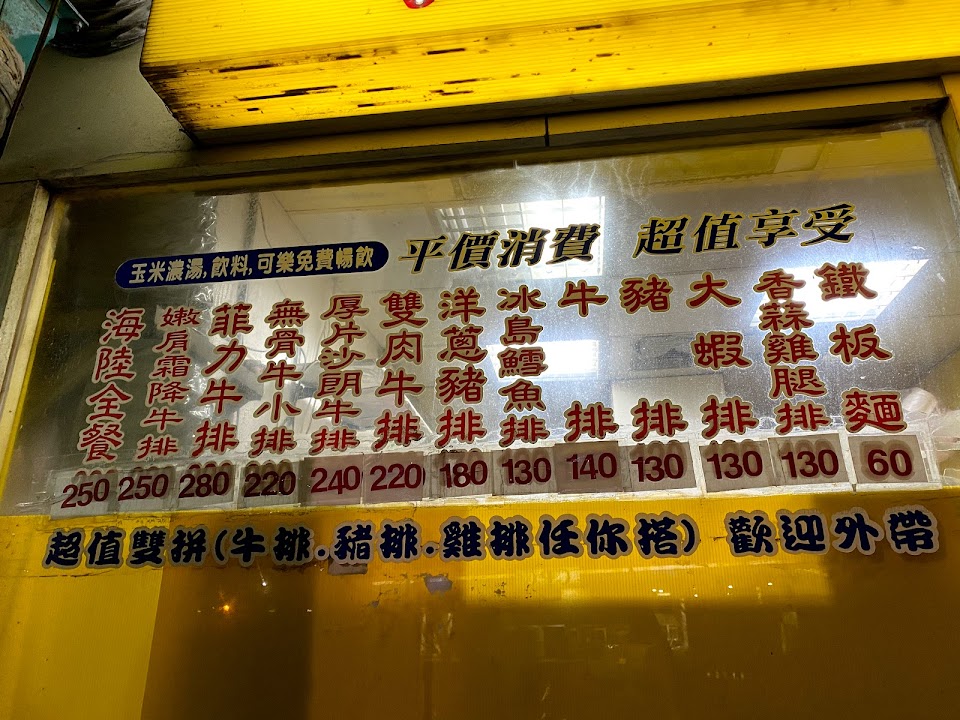 平價消費 超值享受
玉米濃湯,飲料,可樂免費暢飲
鐵板麵 60
香蒜雞腿排 130
大蝦排 130
豬排 130
牛排 140
冰島鱈魚排 130
洋蔥豬排 180
雙肉牛排 220
厚片沙朗牛排 240
無骨牛小排 220
菲力牛排 280
嫩肩霜降牛排 250
海陸全餐 250
超值雙拼(牛排.豬排.雞排任你搭) 歡迎外帶